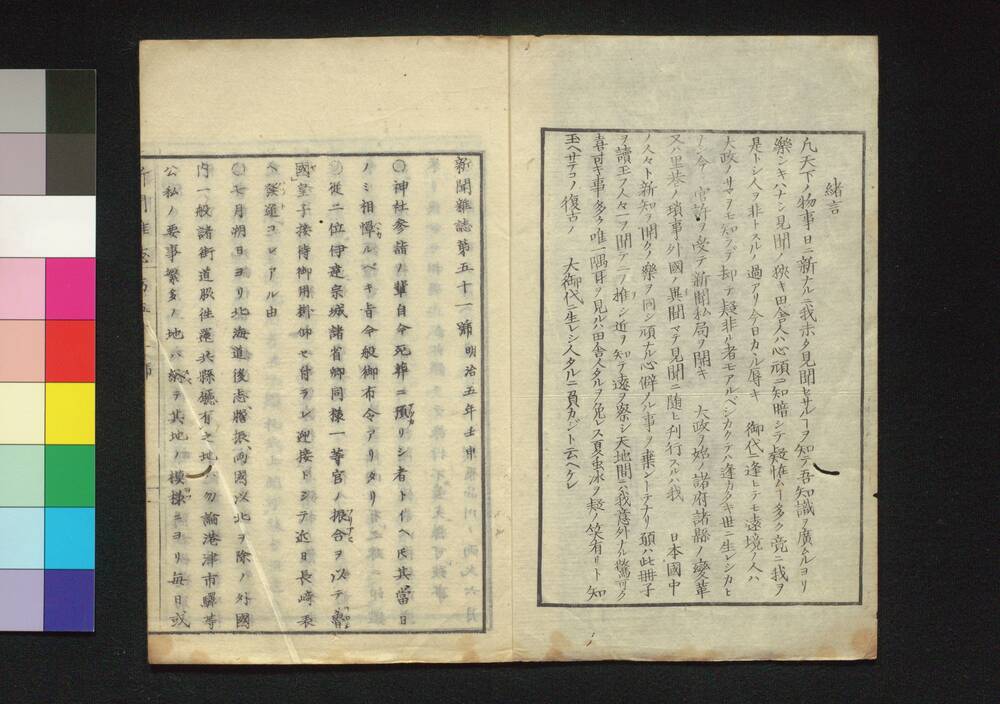 緒言
凡天下ノ物事日ニ新ナルニ我未タ見聞セサルヿヲ知テ吾知識ヲ廣ムルヨリ
樂シキハナシ見聞ノ狹キ田舍人ハ心頑ニ知暗シテ疑恠ムヿ多ク竟ニ我ヲ
是トシ人ヲ非トスルノ過アリ今日カヽル辱キ 御代ニ逢ヒテモ遠境ノ人ハ
大政ノサマヲモ知ラデ却テ疑非ル者モアルベシカクテハ逢カタキ世ニ生レシカヒ
ノ今 官許ヲ受テ新聞私局ヲ開キ 大政ヲ始メ諸府諸縣ノ變革
又ハ里巷ノ瑣事外國ノ異聞マテ見聞ニ隨ヒ刊行スルハ我 日本國中
ノ人々ト新知ヲ開クノ樂ヲ同シ頑ナル心僻メル事ヲ棄ントテナリ頭ハ此冊子
ヲ讀玉フ人々一ヲ聞テ二ヲ推シ近ヲ知テ遠ヲ察シ天地間ニハ我意外ナル驚可ク
喜可キ事多ク唯一隅耳ヲ見ルハ田舍人タルヲ免レス夏虫氷ヲ疑ノ笑有リト知
玉ヘサテコノ復古ノ 大御代ニ生レシ人タルニ負カジト云ヘケレ
新聞雜誌第五十一號 明治五年壬申 六月
〇神社參詣ノ輩自今死葬ニ預リシ者トイヘ𪜈其當日
ノミ相憚ルベキ旨今般御布令アリタリ
〇從二位伊達宗城諸省卿同樣一等官ノ振合ヲ以テ魯
國皇子接待御用掛仰セ付ラレ迎接トシテ近日長崎表
ヘ發遣コレアル由
〇七月朔日ヨリ北海道後志膽振兩國以北ヲ除ノ外國
内一般諸街道脉往還共縣廳有之地ハ勿論港津市驛等
公私ノ要事繁多ノ地ハ總テ其地ノ模樣ニヨリ毎日或